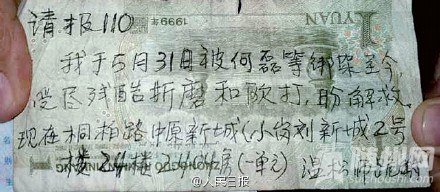 请报110
YUAN
1999年
我于5月31日被何磊等绑架至今,
受尽残酷折磨和殴打,盼解救。
现在桐柏路中原新城(小岗刘新城2号
楼24楼2404房(一单元)
@人民日报